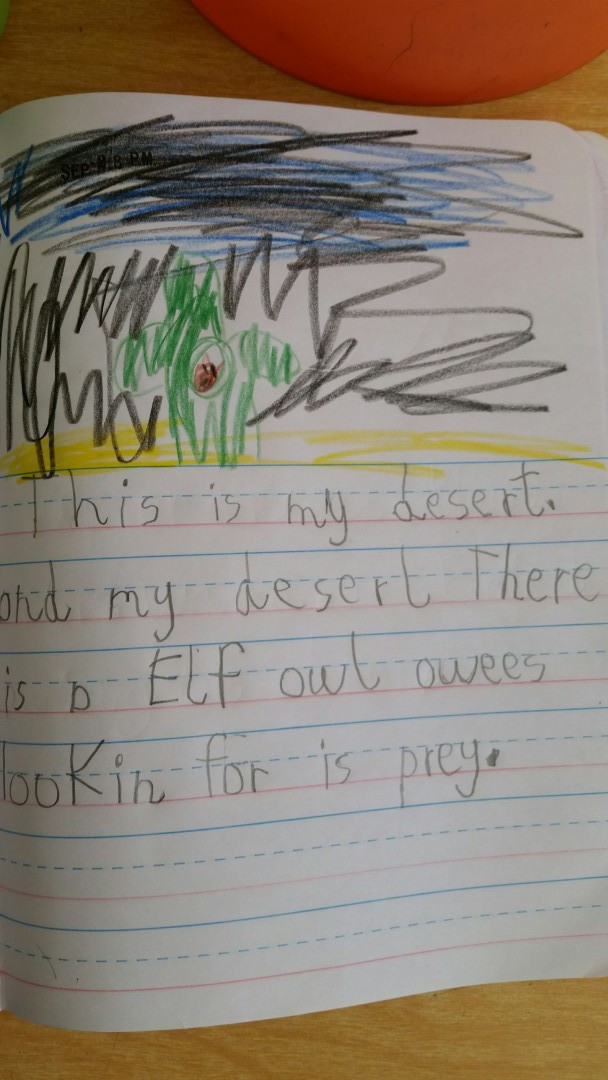 SEP 8 PM
This is my desert.
and my desert There
is a Elf owl owees
lookin for is prey.